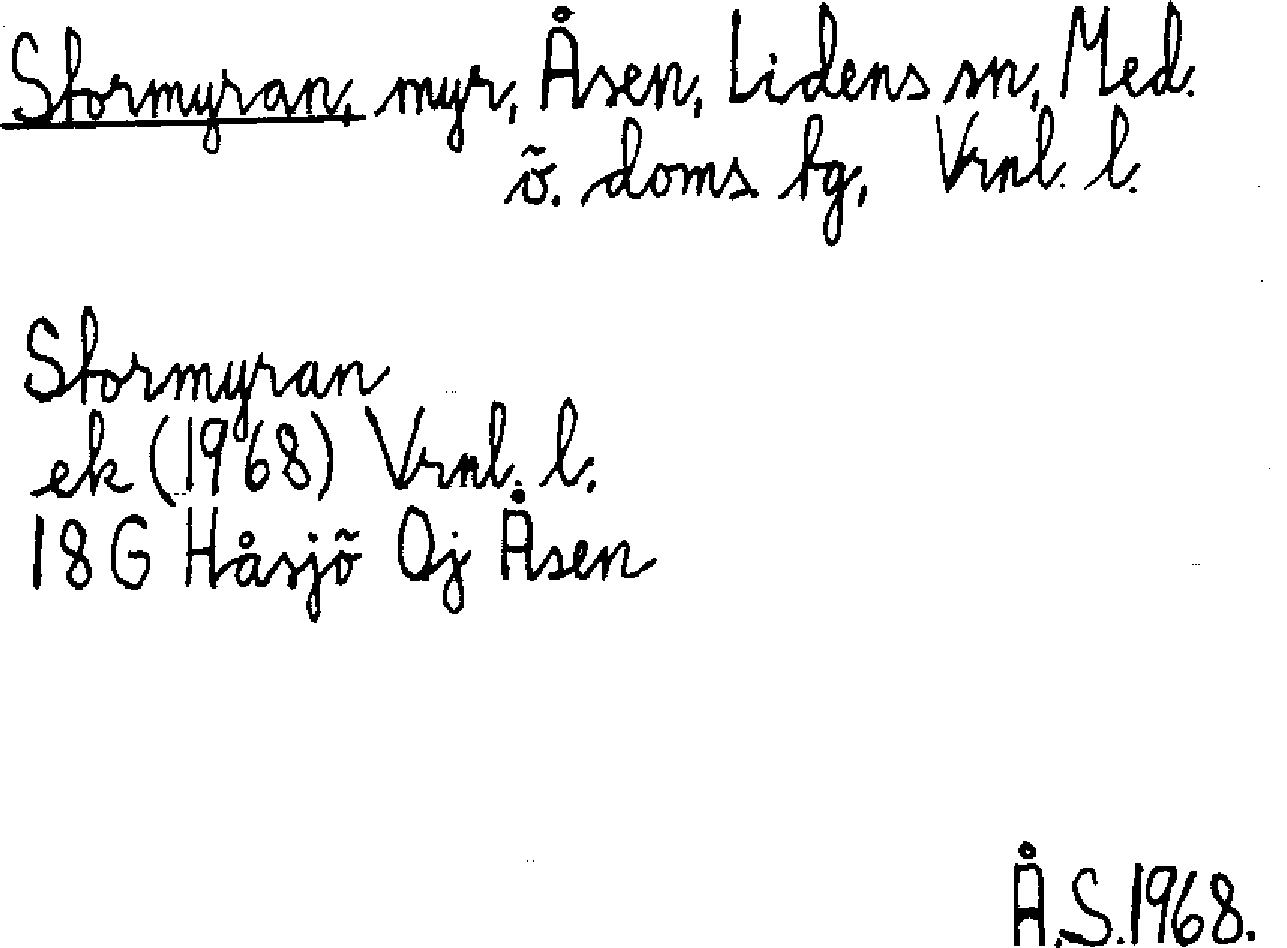 Stormyran, myr, Åsen, Lidens sn, Med.
ö. doms. tg, Vrnl. l.
Stormyran
ek (1968) Vrnl. l.
18G Håsjö Oj Åsen
Å.S.1968.